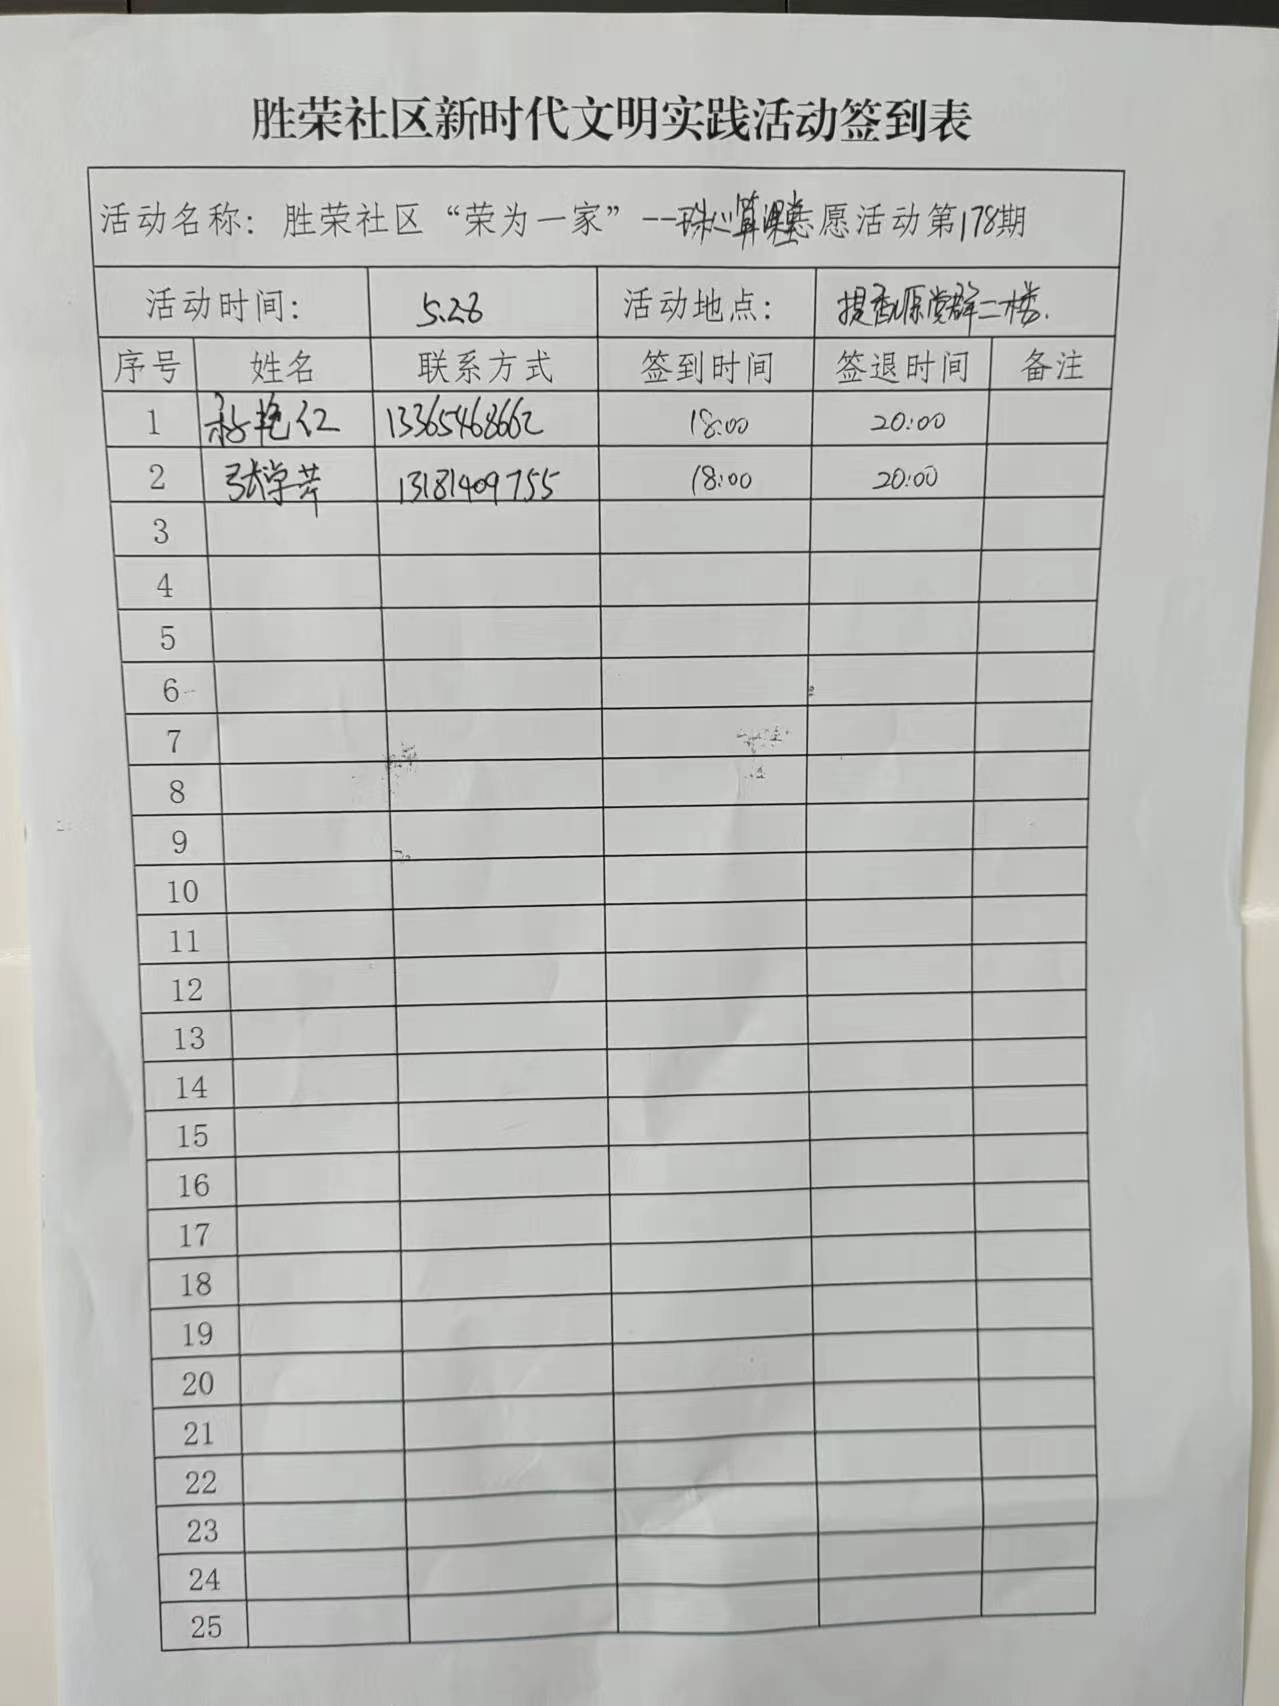 胜荣社区新时代文明实践活动签到表
活动名称：胜荣社区“荣为一家”--珠心算课堂志愿活动第178期
活动时间： 5.28 活动地点： 提香源党群二楼.
序号 姓名 联系方式 签到时间 签退时间 备注
1 艳红 13365468662 18:00 20:00
2 张学芹 13181409755 18:00 20:00
3
4
5
6
7
8
9
10
11
12
13
14
15
16
17
18
19
20
21
22
23
24
25